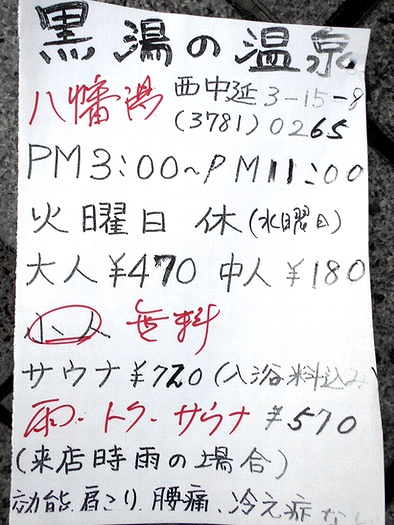 黒湯の温泉
八幡湯 西中延3-15-8
(3781)0265
PM3:00~PM11:00
火曜日 休(水曜日)
大人¥470 中人¥180
小人 無料
サウナ¥720(入浴料込み)
雨の トク・サウナ ¥570
(来店時雨の場合)
効能、肩こり、腰痛、冷え症など